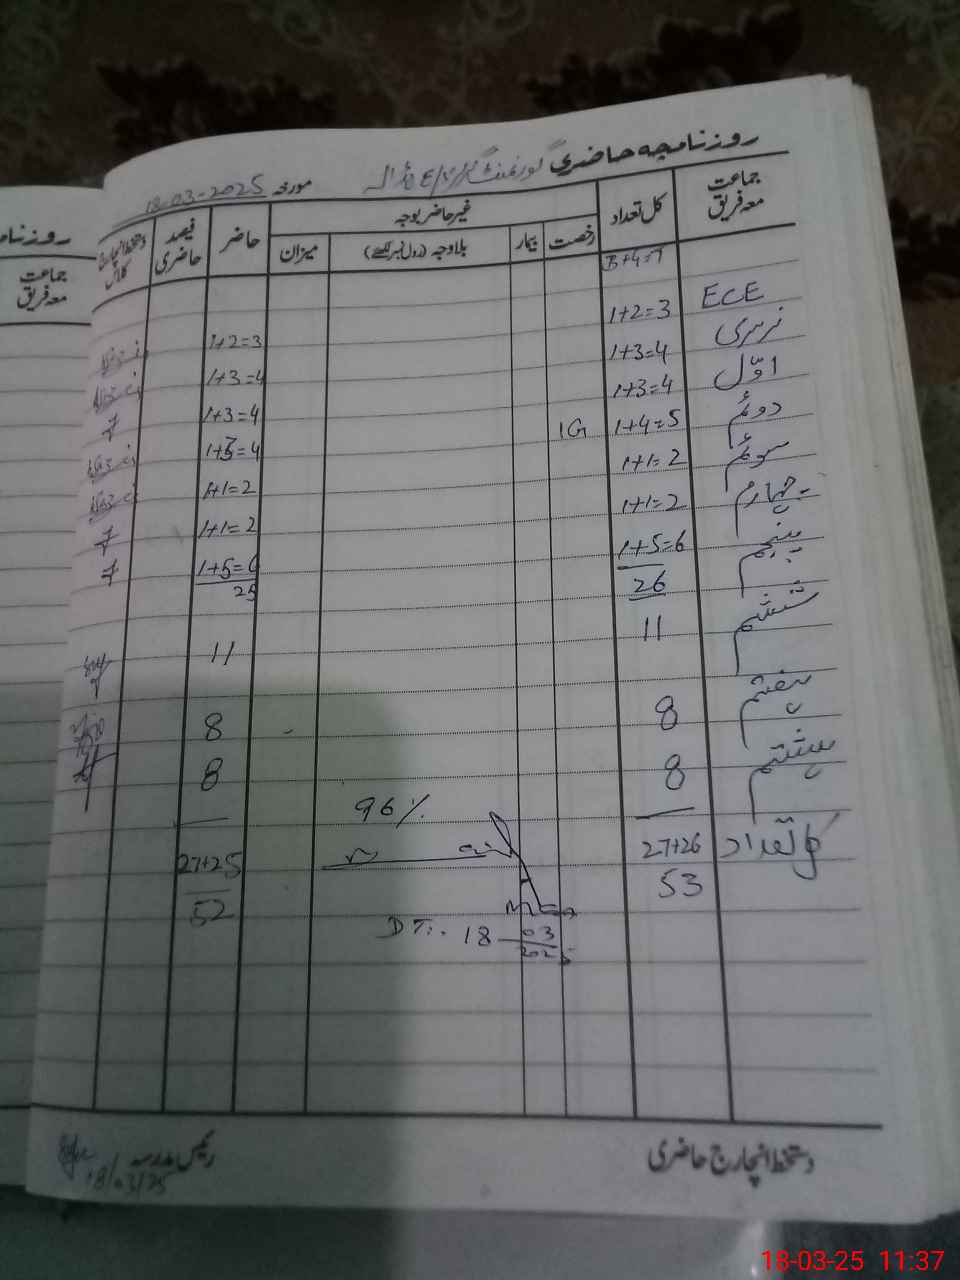 روزنامچہ حاضری گورنمنٹ
مورخہ 18-03-2025
جماعت معہ فریق
کل تعداد
غیر حاضر بوجہ
رخصت
بیمار
بلاوجہ (رول نمبر لکھئے)
میزان
حاضر
فیصد حاضری
دستخط انچارج کلاس
B+4=7
ECE 1+2=3 1+2=3
نرسری 1+3=4 1+3=4
اوّل 1+3=4 1+3=4
دوئم 1+4=5 1G 1+3=4
سوئم 1+1=2 1+1=2
چہارم 1+1=2 1+1=2
پنجم 1+5=6 1+5=6
26 25
ششم 11 11
ہفتم 8 8
ہشتم 8 8
96%
کل تعداد 27+26 27+25
53 52
DT:. 18 03 2025
دستخط انچارج حاضری
رئیس مدرسہ
18/03/25
روزنامچہ
جماعت معہ فریق
18-03-25 11:37